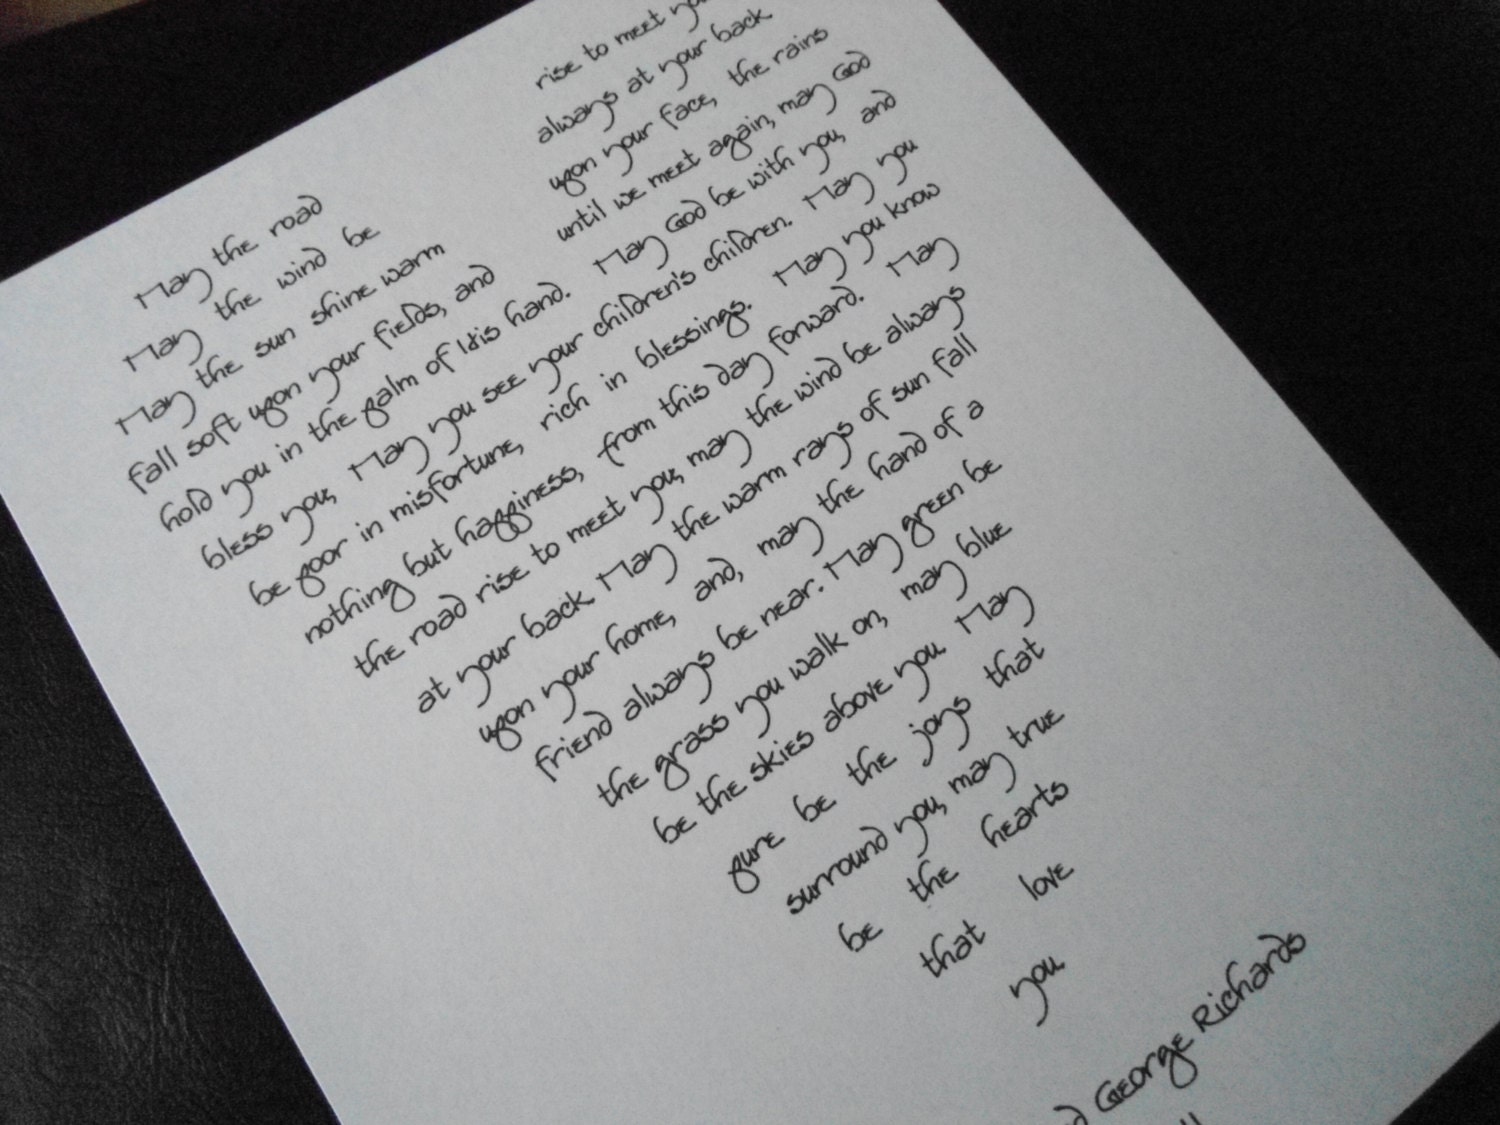 May the road rise to meet
May the wind be always at your back
May the sun shine warm upon your face, the rains
fall soft upon your fields, and until we meet again, may God
hold you in the palm of His hand. May God be with you, and
bless you, May you see your children's children. May you
be poor in misfortune, rich in blessings. May you know
nothing but happiness, from this day forward. May
the road rise to meet you, may the wind be always
at your back May the warm rays of sun fall
upon your home, and, may the hand of a
friend always be near. May green be
the grass you walk on, may blue
be the skies above you May
pure be the joys that
surround you, may true
be the hearts
that love
you
George Richards